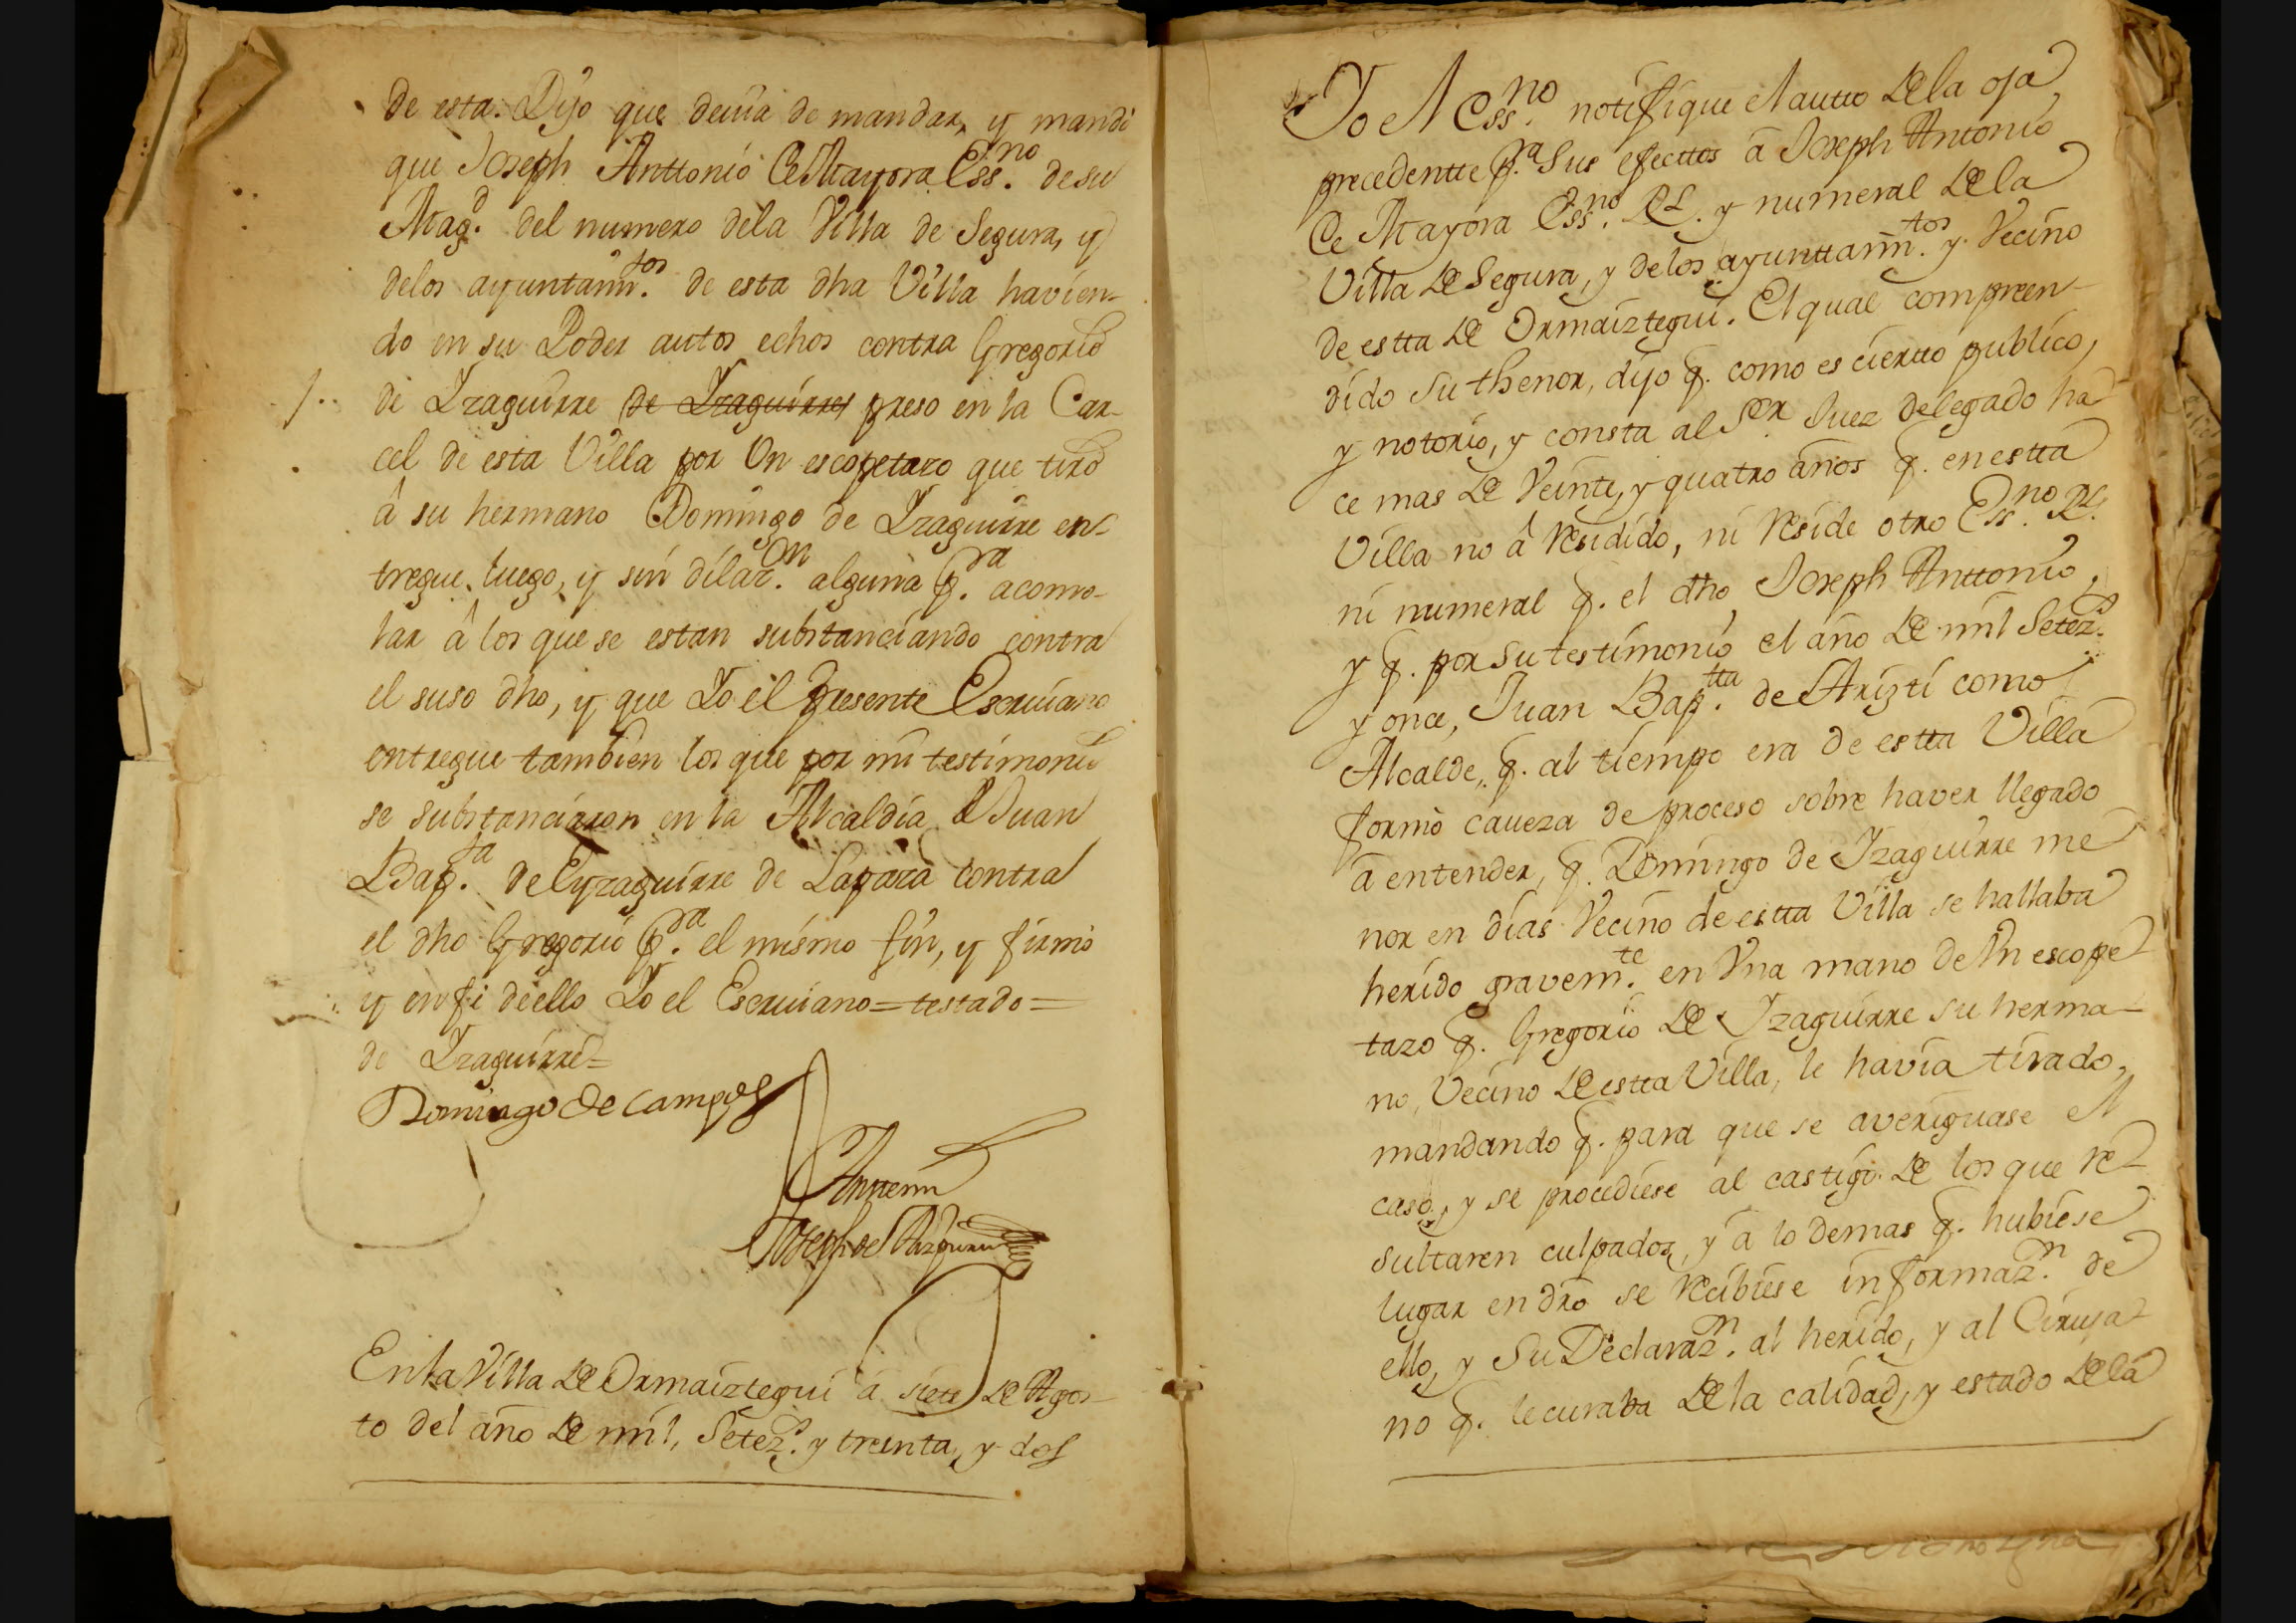 de esta. Dijo que devia de mandar, y mandó
que Joseph Anttonio Ce Mayora Ess.no de su
Mag.d del numero dela Villa de Segura, y
delos ayuntam.tos de esta dha Villa havien-
do en su Poder autos echos contra Gregorio
de Yzaguirre de Yzaguirre preso en la Car-
cel de esta Villa por Vn escopetazo que tiró
â su hermano Domingo de Yzaguirre en-
tregue luego, y sin dilaz.on alguna p.ra acomo-
lar â los que se estan substanciando contra
el suso dho, y que Yo el presente Escriuano
entregue tambien los que por mi testimonio
se substanciaron en la Alcaldia d Juan
Bap.ta de Eyzaguirre de Lapaza contra
el dho Gregorio p.ra el mismo fin, y firmó
y en fe de ello Yo el Escriuano=testado=
de Yzaguirre=
Domingo de Campos
Antemi
Joseph de Aizpuru
En la Villa de Ormaiztegui â siete de Agos-
to del año de mil, Setez.s y treinta, y dos
Yo el Ess.no notifique el autto de la oja
precedentte p.a Sus efecttos â Joseph Antonio
Ce Mayora Ess.no Rl. y numeral de la
Villa de Segura, y de los ayunttam.tos y Vecino
de estta de Ormaiztegui. El qual compreen-
dido su thenor, dijo q. como es ciertto publico,
y notorio, y consta al S.or Juez delegado ha
ce mas de Veinte, y quatro años q. en estta
Villa no â Residido, ni Reside otro Ess.no Rl.
ni numeral q. el dho Joseph Anttonio,
y q. por su testimonio el año de mil Setez.s
y once, Juan Bap.tta de Arizti como
Alcalde, q. al tiempo era de estta Villa
formó caueza de proceso sobre haver llegado
â entender, q. Domingo de Yzaguirre me
nor en dias Vecino de estta Villa se hallaba
herido gravem.te en Vna mano de Vn escope
tazo q. Gregorio de Yzaguirre su herma-
no, Vecino de estta Villa, le havia tirado,
mandando q. para que se averiguase el
caso, y se procediese al castigo de los que re
sultaren culpados, y â lo demas q. hubiese
lugar en dro se Recibiese informaz.n de
ello, y Su Declaraz.n al herido, y al Ciruja
no q. le curaba de la calidad, y estado de la